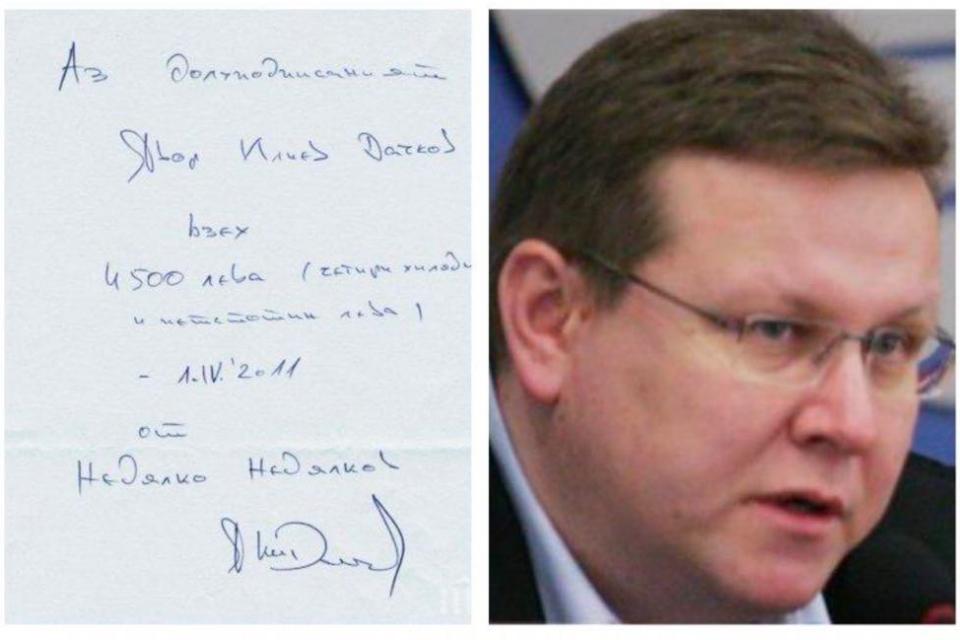 Аз долуподписаният
Явор Илиев Дачков
взех
4500 лева (четири хиляди
и петстотин лева)
- 1.IV.'2011
от
Недялко Недялков